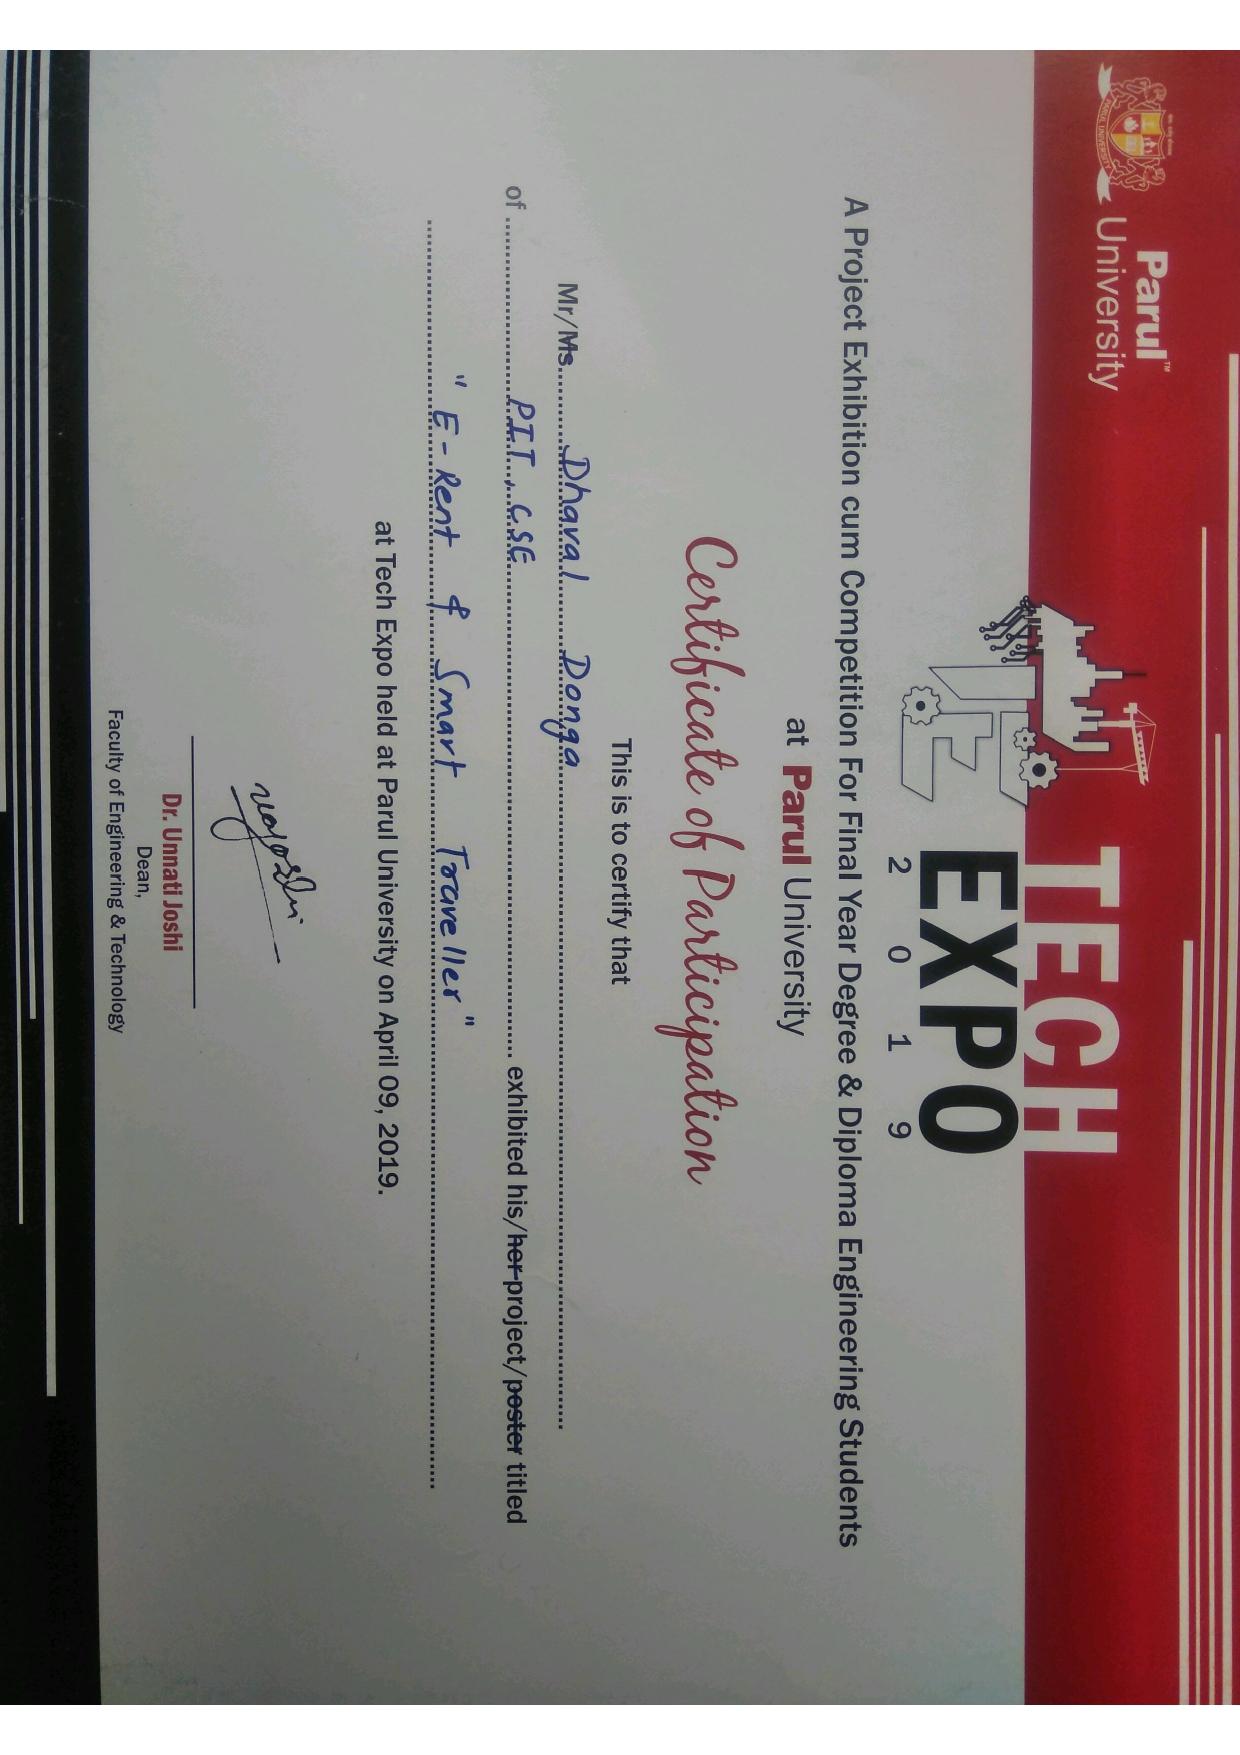 Parul™
University
PARUL UNIVERSITY
TECH
EXPO
2 0 1 9
A Project Exhibition cum Competition For Final Year Degree & Diploma Engineering Students
at Parul University
Certificate of Participation
This is to certify that
Mr/Ms.......... Dhaval Donga
of .......... P.I.T , CSE .......... exhibited his/her project/poster titled
" E-Rent & Smart Traveller "
at Tech Expo held at Parul University on April 09, 2019.
Dr. Unnati Joshi
Dean,
Faculty of Engineering & Technology